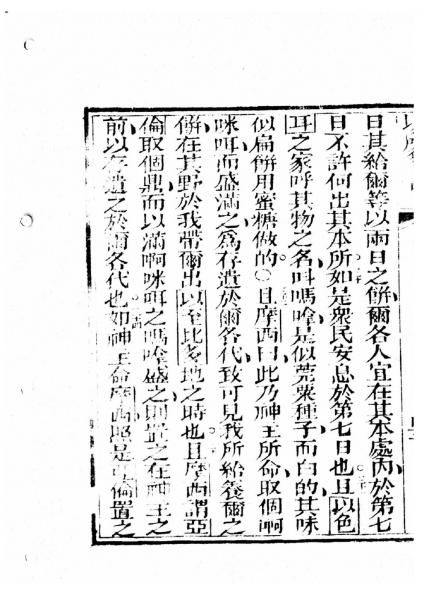 日其給爾等以兩日之餅爾各人宜在其本處內於第七
日不許何出其本所如是衆民安息於第七日也且以色
耳之家呼其物之名呌嗎嗱是似莞粟種子而白的其味
似扁餅用蜜糖做的○且摩西曰此乃神主所命取個啊
咪咡而盛滿之爲存遺於爾各代致可見我所給養爾之
餅在其野於我帶爾出以至比多地之時也且摩西謂亞
倫取個鼎而以滿啊咪咡之嗎嗱盛之則置之在神主之
前以存遺之於爾各代也如神主命摩西照是亞倫置之